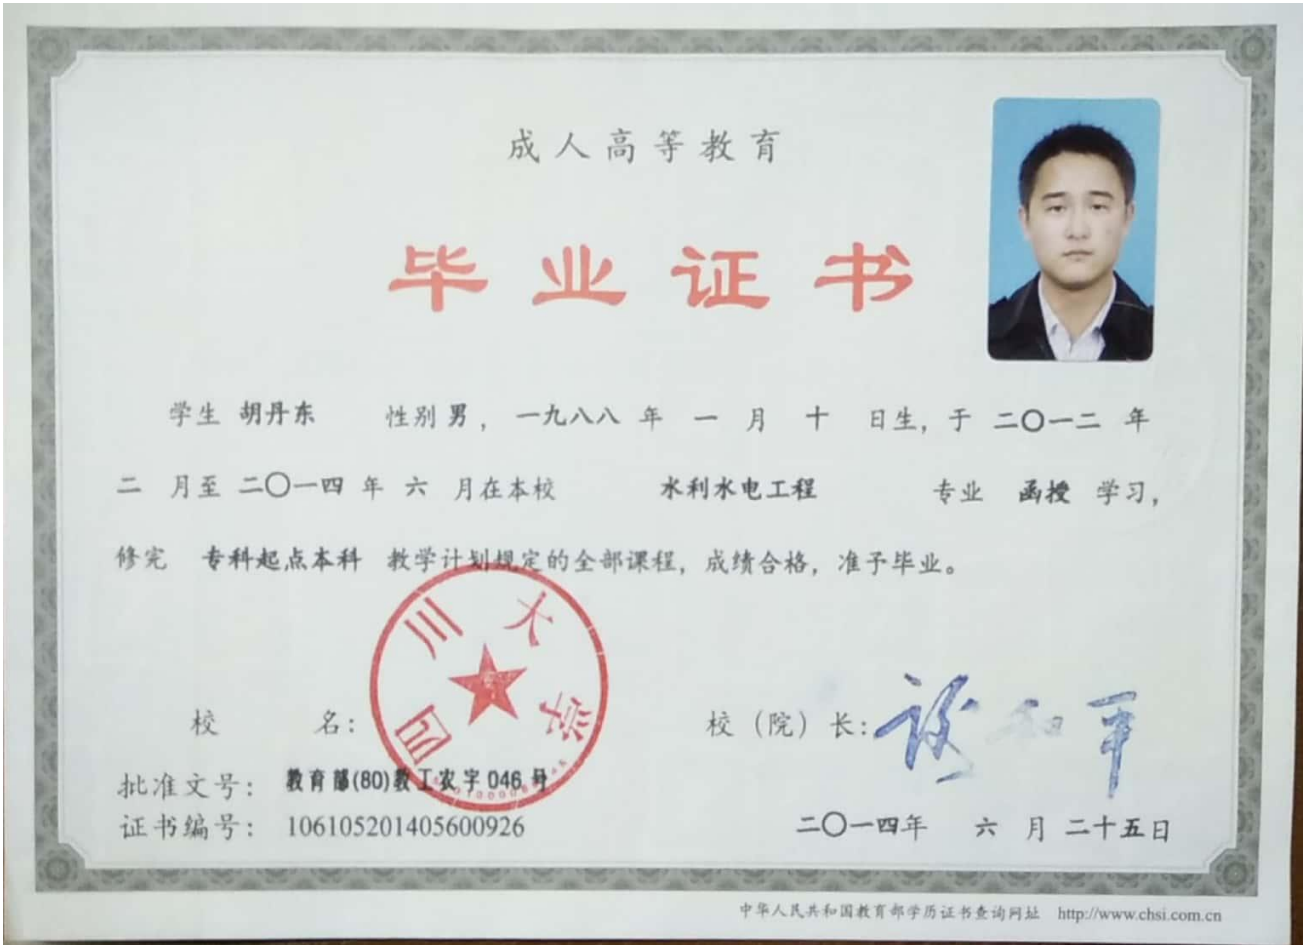 成人高等教育
毕业证书
学生 胡丹东 性别 男，一九八八 年 一 月 十 日生，于 二〇一二 年
二 月至 二〇一四 年 六 月在本校 水利水电工程 专业 函授 学习，
修完 专科起点本科 教学计划规定的全部课程，成绩合格，准予毕业。
四川大学
校 名： 校（院）长：谢和平
批准文号： 教育部(80)教工农字046号
证书编号： 106105201405600926 二〇一四年 六 月 二十五日
中华人民共和国教育部学历证书查询网址 http://www.chsi.com.cn